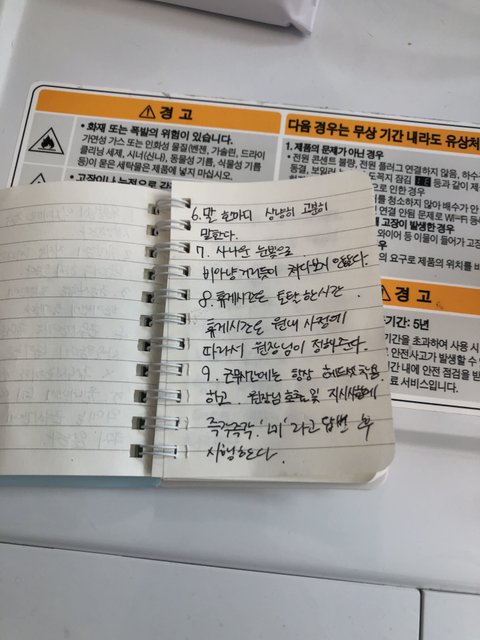 경 고
• 화재 또는 폭발의 위험이 있습니다.
가연성 가스 또는 인화성 물질(벤젠, 가솔린, 드라이
클리닝 세제, 시너(신나), 동물성 기름, 식물성 기름
등)이 묻은 세탁물은 제품에 넣지 마십시오.
• 고장이나 누전으로 감
다음 경우는 무상 기간 내라도 유상처
1. 제품의 문제가 아닌 경우
• 전원 콘센트 불량, 전원 플러그 연결하지 않음, 하수
동결, 도어
도픽지 잠김 등과 같이 제
으로 인한 경우
를 청소하지 않아 배수가 안
연결 안됨 문제로 Wi-Fi 등
해 고장이 발생한 경우
와이어 등 이물이 들어가 고
우
의 요구로 제품의 위치를 바
경 고
기간: 5년
기간을 초과하여 사용 시
안전사고가 발생할 수
기간 내에 안전 점검을 받
료 서비스입니다.
6. 말 한마디 상냥히 고분히
말한다.
7. 사나운 눈빛으로
비아냥거리듯이 쳐다보지 않는다.
8. 휴게시간은 토탄 한시간.
휴게시간은 원내 사정에
따라서 원장님이 정해준다.
9. 근무시간에는 항상 헤드셋 착용
하고 원장님 호출 및 지시사항에
즉각즉각 '네' 라고 답변 후
시행한다.